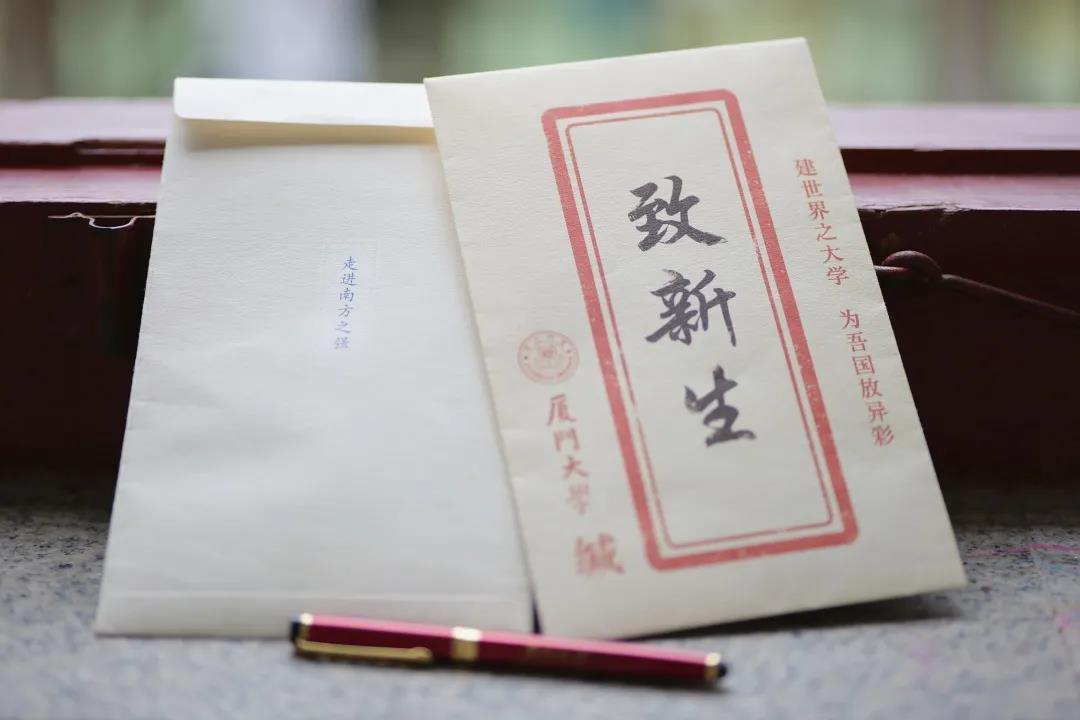 走进南方之强
建世界之大学 为吾国放异彩
致新生
厦門大學 缄